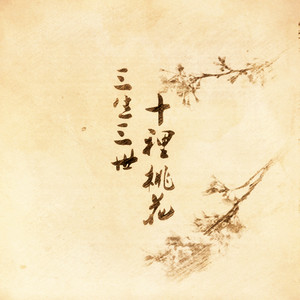 三生三世
十裡桃花